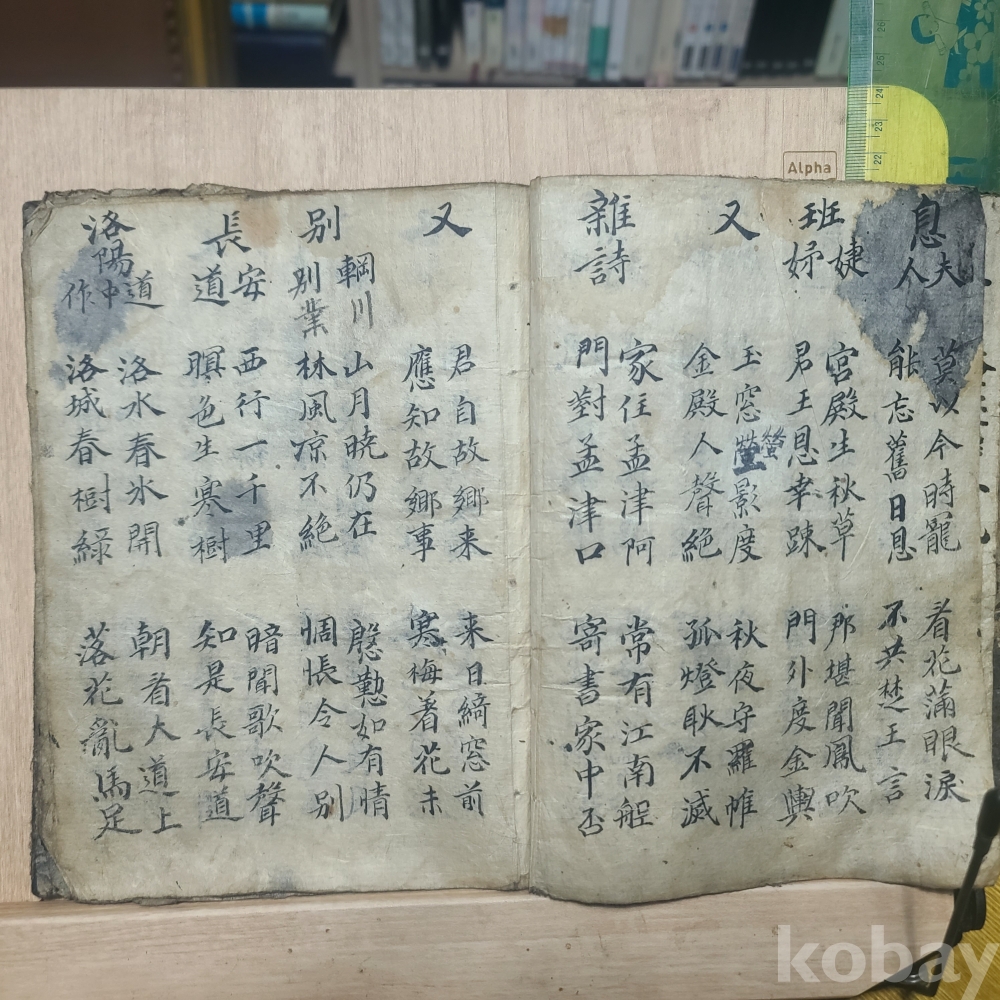 息夫人
莫以今時寵
能忘舊日恩
看花滿眼淚
不共楚王言
班婕妤
宮殿生秋草
君王恩幸踈
那堪聞鳳吹
門外度金輿
又
玉窓螢影度
金殿人聲絶
秋夜守羅帷
孤燈耿不滅
雜詩
家住孟津阿
門對孟津口
常有江南舡
寄書家中否
又
君自故鄉来
應知故鄉事
来日綺窓前
寒梅着花未
別輞川別業
山月曉仍在
林風凉不絶
慇懃如有情
惆悵令人別
長安道
西行一千里
暝色生寒樹
暗聞歌吹聲
知是長安道
洛陽道中作
洛水春氷開
洛城春樹綠
朝看大道上
落花亂馬足
Alpha
26
25
24
23
22
kobay